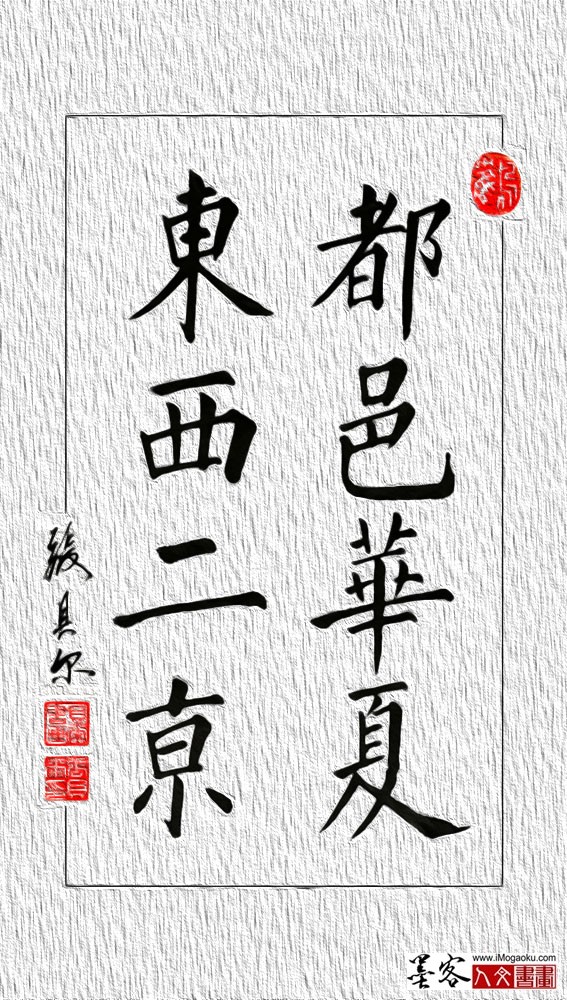 都邑華夏
東西二京
墨客
www.iMogaoku.com
人文書畫